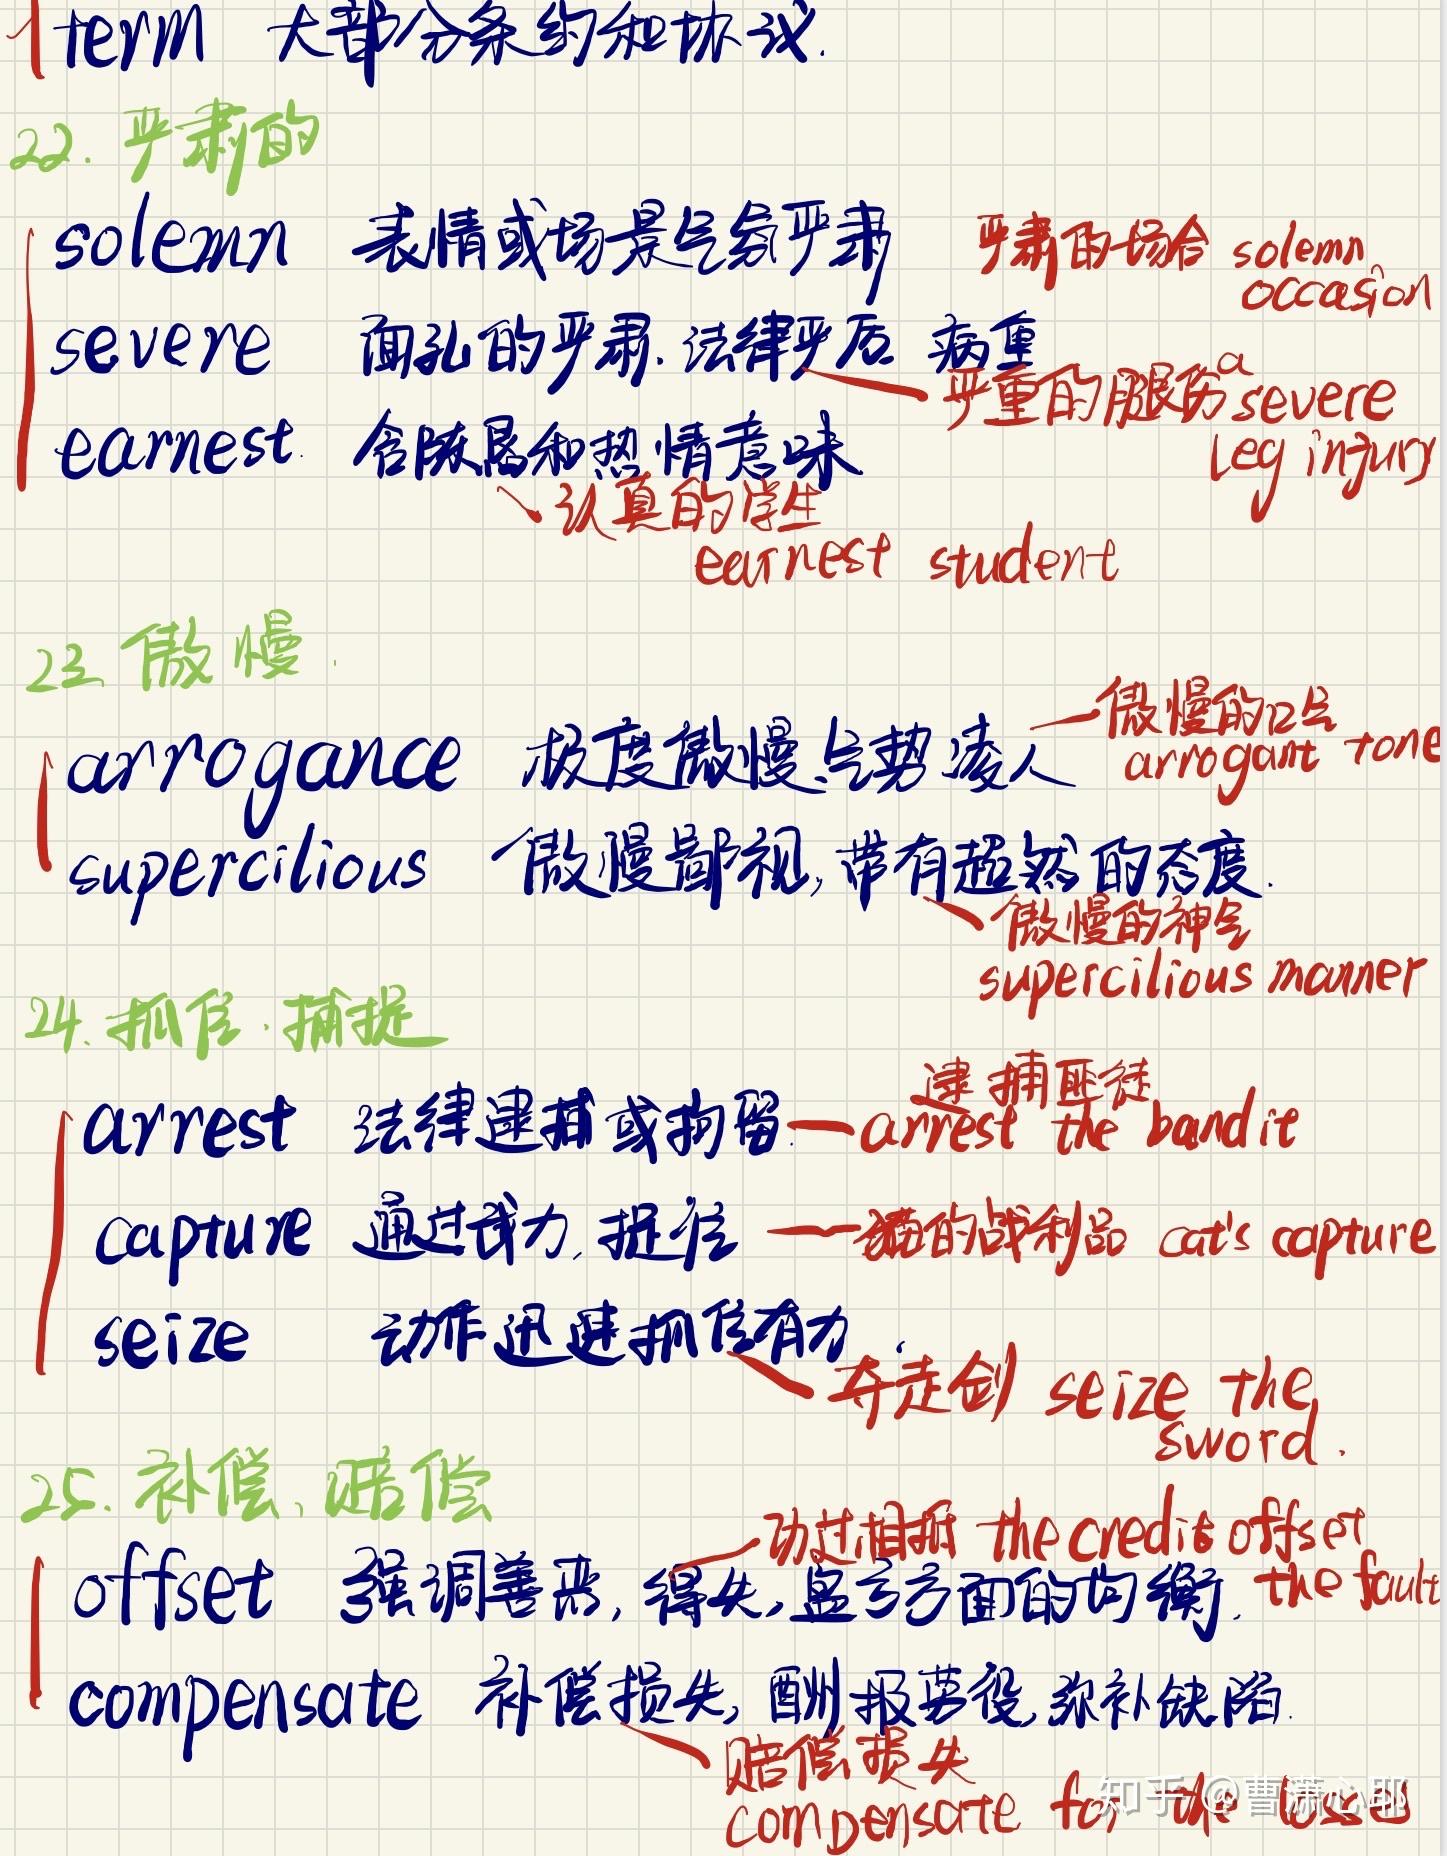 term 大部分条约和协议.
22. 严肃的
solemn 表情或场景气氛严肃
严肃的场合 solemn
occasion
severe 面孔的严肃. 法律严厉 病重
严重的腿伤 a severe
leg injury
earnest. 含 和热情意味
认真的学生
earnest student
23. 傲慢.
arrogance 极度傲慢、气势凌人
傲慢的口气
arrogant tone
supercilious 傲慢鄙视, 带有超然的态度.
傲慢的神气
supercilious manner
24. 抓住. 捕捉
逮捕匪徒
arrest 法律逮捕或拘留. arrest the bandit
capture 通过武力, 捉住 猫的战利品 cat's capture
seize 动作迅速抓住有力.
夺走剑 seize the
sword.
25. 补偿、赔偿
功过相抵 the credit offset
the fault
offset 强调善恶, 得失, 盈亏方面的均衡.
compensate 补偿损失, 酬报劳役, 弥补缺陷.
赔偿损失
compensate for the losses
知乎 @曹潇心耶